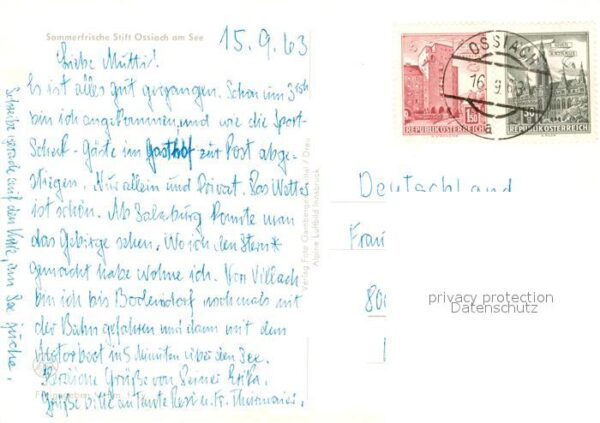 Sommerfrische Stift Ossiach am See
15.9.63
Liebe Mutti!
Es ist alles gut gegangen. Schon um 3
bin ich angekommen, und wie die Sport-
Scheck-Gäste im Gasthof zur Post abge-
stiegen. Nur allein und Privat. Das Wetter
ist schön. Ab Salzburg konnte man
das Gebirge sehen. Wo ich den Stern*
gemacht habe wohne ich. Von Villach
bin ich bis Bodensdorf nochmals mit
der Bahn gefahren und dann mit dem
Motorboot in 5 Minuten über den See.
Herzliche Grüße von Deiner Erika.
Grüße bitte an Tante Resi u. Fr.
Schreibe gerade auf den Knien, am See
Verlag Foto
Alpine Luftbild Innsbruck
OSSIACH
16. 9. 63
a
1.50
REPUBLIK ÖSTERREICH
REPUBLIK ÖSTERREICH
Deutschland
privacy protection
Datenschutz